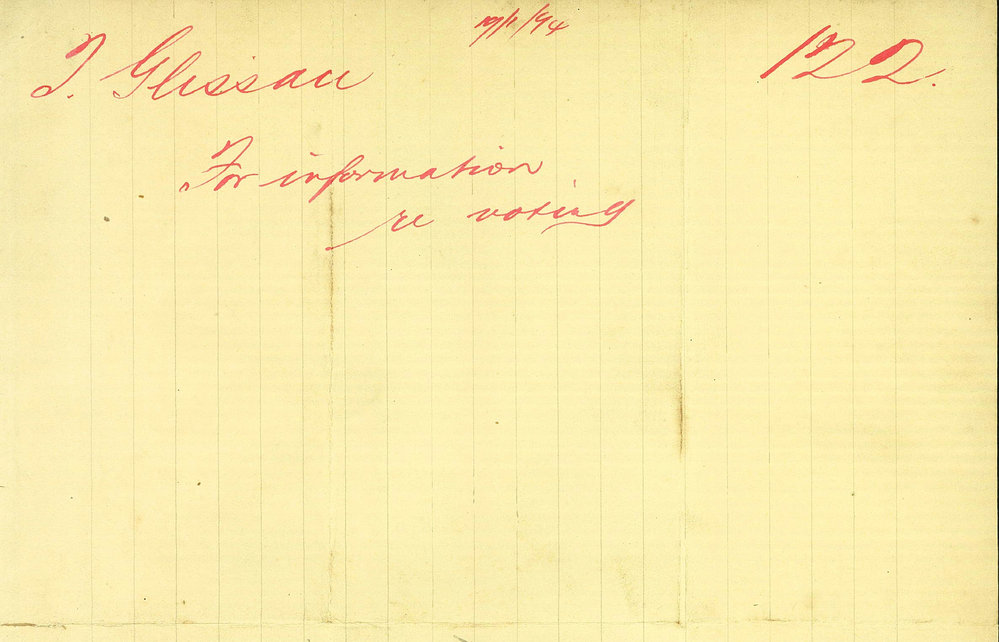 19/1/94
T. Glissan 122.
For information
re voting